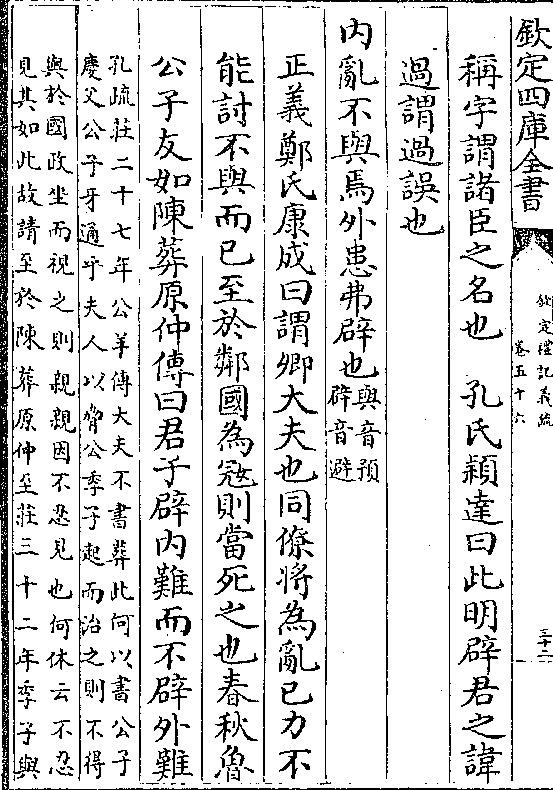 欽定四庫全書
欽定禮記義疏
卷五十六
三十二
稱字謂諸臣之名也　孔氏穎達曰此明辟君之諱
過謂過誤也
内亂不與焉外患弗辟也與音預
辟音避
正義鄭氏康成曰謂卿大夫也同僚將為亂已力不
能討不與而已至於鄰國為寇則當死之也春秋魯
公子友如陳葬原仲傳曰君子辟内難而不辟外難
孔疏莊二十七年公羊傳大夫不書葬此何以書公子
慶父公子牙通乎夫人以脅公季子起而治之則不得
與於國政坐而視之則親親因不忍見也何休云不忍
見其如此故請至於陳葬原仲至莊三十二年季子與